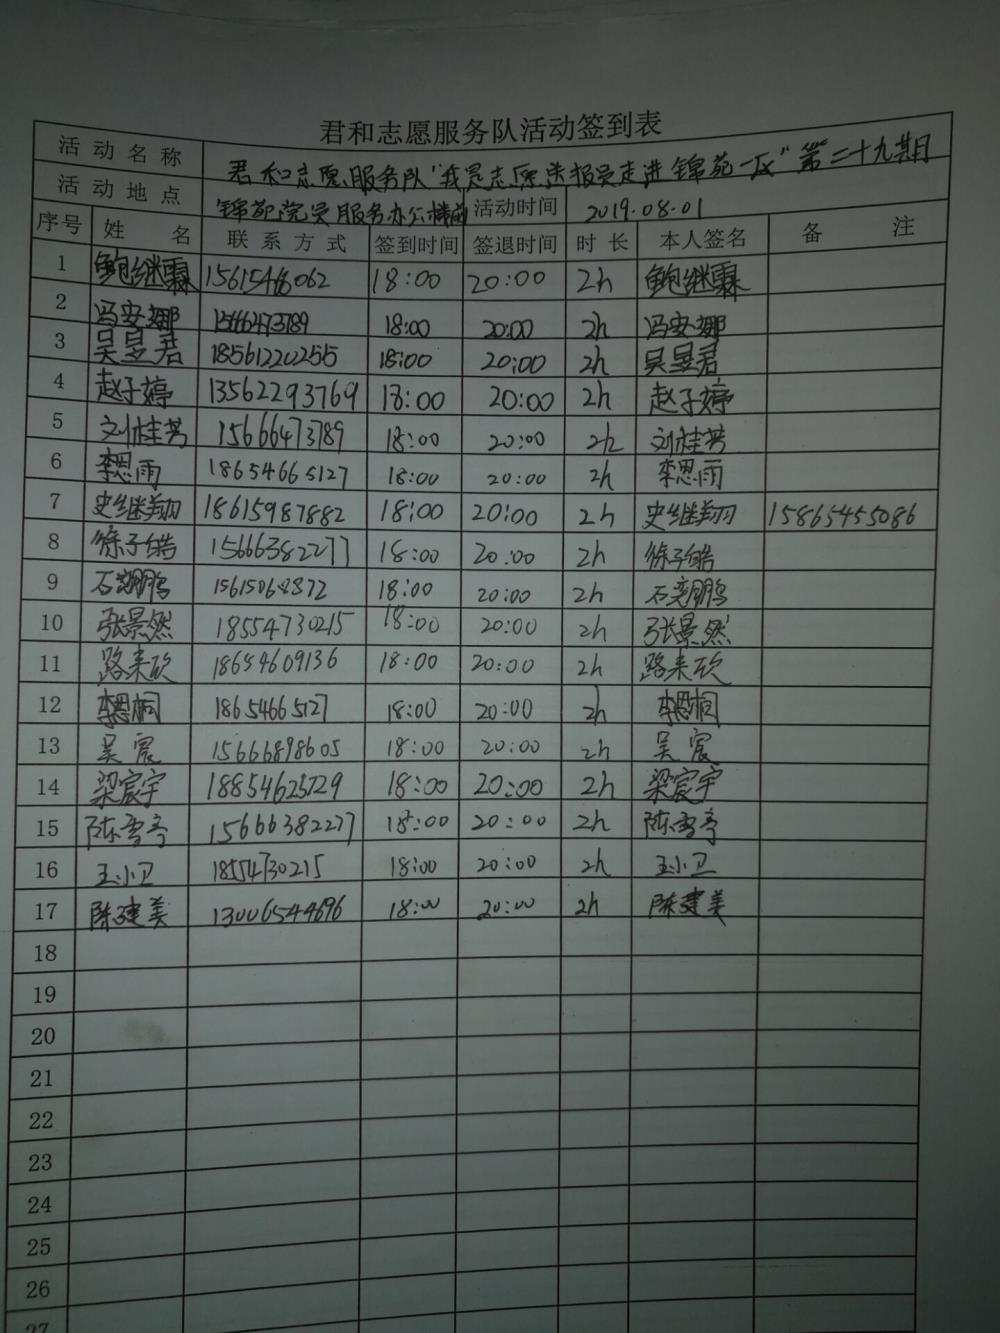 君和志愿服务队活动签到表
活动名称 君和志愿服务队"我是志愿送报员走进锦苑一区"第二十九期
活动地点 锦苑党员服务办公楼前 活动时间 2019.08.01
序号 姓名 联系方式 签到时间 签退时间 时长 本人签名 备注
1 鲍继霖 18:00 20:00 2h 鲍继霖
2 冯安娜 15666473789 18:00 20:00 2h 冯安娜
3 吴昱君 18561220255 18:00 20:00 2h 吴昱君
4 赵子婷 13562293769 18:00 20:00 2h 赵子婷
5 刘桂芳 15666473789 18:00 20:00 2h 刘桂芳
6 李恩雨 18654665127 18:00 20:00 2h 李恩雨
7 史继翔 18615987882 18:00 20:00 2h 史继翔 15865455086
8 徐子皓 15666382277 18:00 20:00 2h 徐子皓
9 石翔鹏 15615068872 18:00 20:00 2h 石翔鹏
10 张景然 18554730215 18:00 20:00 2h 张景然
11 路来欣 18654609136 18:00 20:00 2h 路来欣
12 李恩桐 18654665127 18:00 20:00 2h 李恩桐
13 吴宸 15666898605 18:00 20:00 2h 吴宸
14 梁宸宇 18854625729 18:00 20:00 2h 梁宸宇
15 陈雪亭 15666382277 18:00 20:00 2h 陈雪亭
16 王小卫 18554730215 18:00 20:00 2h 王小卫
17 陈建美 13006544696 18:00 20:00 2h 陈建美
18
19
20
21
22
23
24
25
26
27